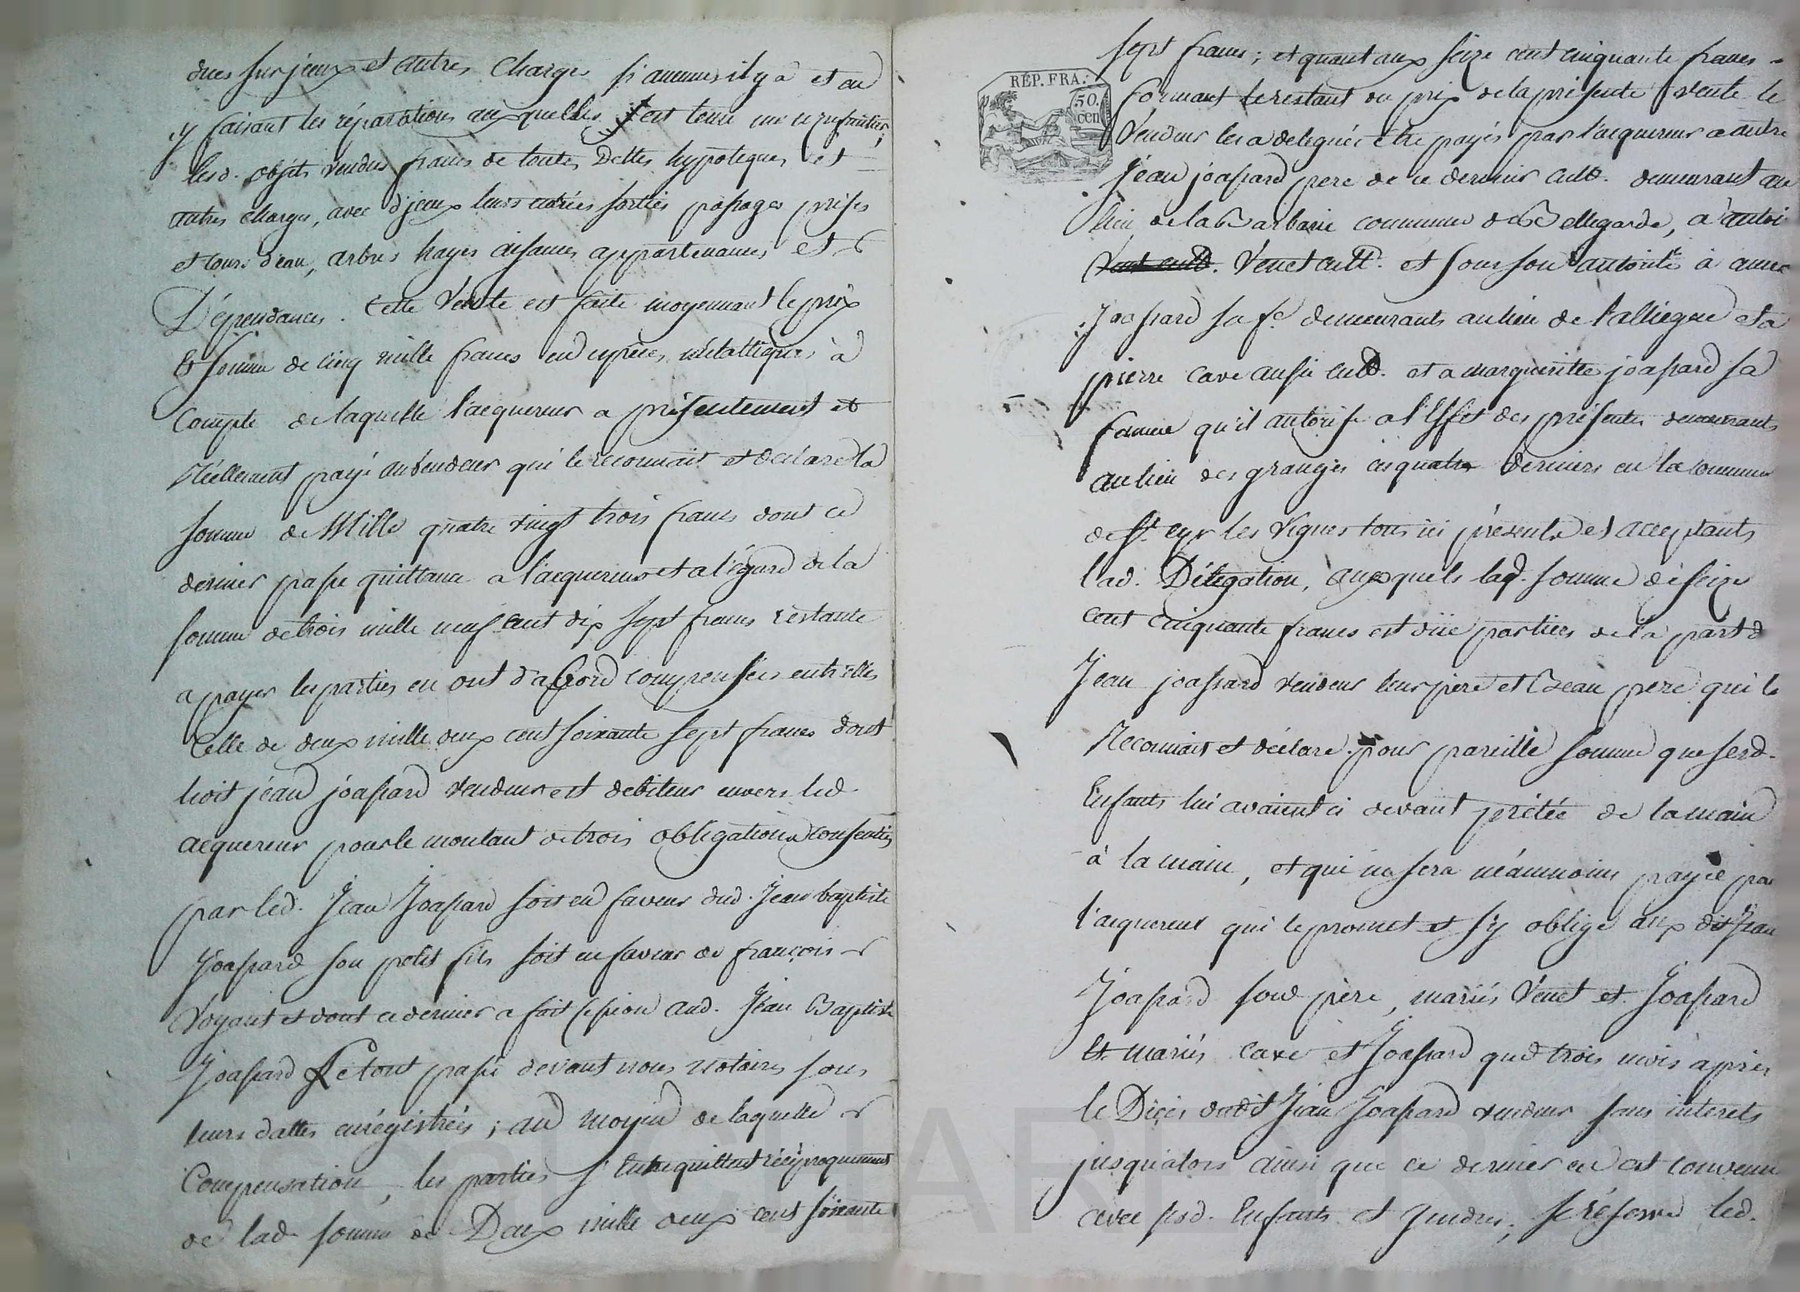 dues sur jceux et autres charges si aucunes il y a et en
y faisant les réparations auxquelles est tenu un usufruitier,
lesd. objets vendus francs de toutes dettes hypoteques et
autres charges, avec d'jceux leurs entrées sorties passages prises
et cours d'eau, arbres hayes aisances appartenances et
Dépendances. Cette vente est faite moyennant le prix
et somme de cinq mille francs en espèces métalliques à
Compte de laquelle l'acquereur a présentement et
Réellement payé au vendeur qui le reconnait et declare la
somme de Mille quatre vingt trois francs dont ce
dernier passe quittance a l'acquereur et a l'égard de la
somme de trois mille neuf cent dix sept francs restante
a payer les parties en ont d'abord compensées entr'elles
Celle de deux mille deux cent soixante sept francs dont
ledit jéan joassard vendeur est debiteur envers led.
acquereur pour le montant de trois obligations consenties
par led. Jéan Joassard soit en faveur dud. Jean baptiste
Joassard son petit fils soit en faveur de françois
Voyant et dont ce dernier a fait cession aud. Jéan Baptiste
Joassard Le tout passé devant nous notaires sous
leurs dattes enrégistrées; au moyen de laquelle
Compensation, les parties s'entrequittent réciproquement
de lad. somme de Deux mille deux cent soixante
RÉP. FRA.
50.
cen
sept francs; et quant aux seize cent cinquante francs
formant le restant du prix de la présente vente le
Vendeur les a delegués être payés par l'acquereur a autre
Jéan joassard pere de ce dernier cult. demeurant au
lieu de la Barbarie commune de Bellegarde, a antoi
Venet cult. et sous son autorité à anne
Joassard sa fe. demeurants au lieu de l'alliegue et a
pierre cave aussi cult. et a margueritte joassard sa
femme qu'il autorise a l'Effet des présentes demeurants
au lieu des granges ces quatre derniers en la commune
de St. cyr les vignes tous ici présents et acceptants
lad. Délégation, auxquels lad. somme de seize
cent cinquante francs est düe parties de la part d
Jean joassard vendeur leur pere et Beau pere qui le
Reconnait et déclare pour pareille somme que sesd.
Enfants lui avaient ci devant prétée de la main
à la main, et qui ne sera néanmoins payée par
l'acquereur qui le promet et s'y oblige aux dit Jean
Joassard sond père, mariés Vénet et Joassard
et mariés Cave et Joassard que trois mois après
le Décès dudit Jéan Joassard vendeur sans interets
jusqu'alors ainsi que ce dernier en est convenu
avec sesd. Enfants et gendres; se réserve led.
CHARLYRON